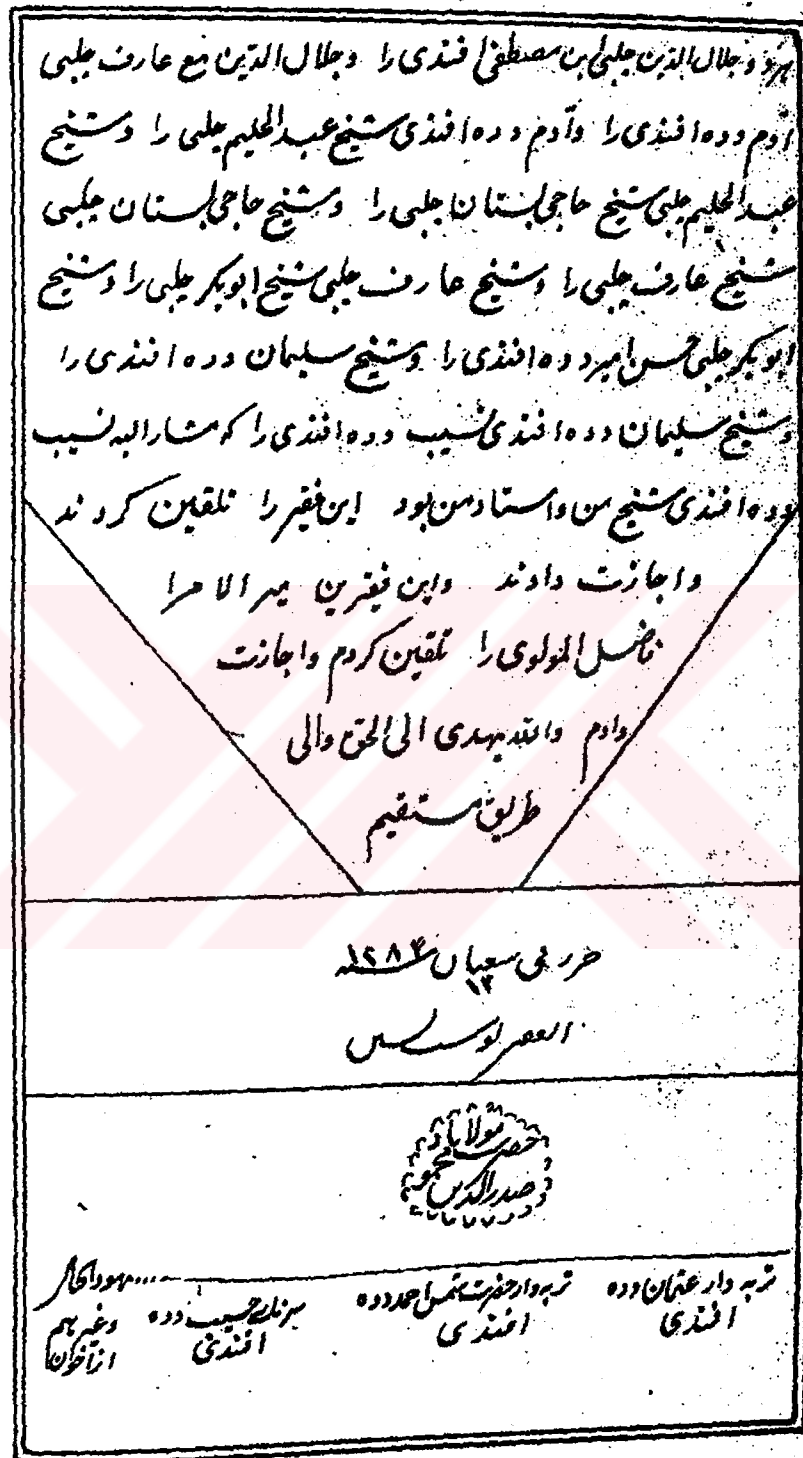 و جلال الدین چلبی ابن مصطفی افندی را و جلال الدین مع عارف چلبی
آدم دده افندی را و آدم دده افندی شیخ عبد الحلیم چلبی را و شیخ
عبد الحلیم چلبی شیخ حاجی بستان چلبی را و شیخ حاجی بستان چلبی
شیخ عارف چلبی را و شیخ عارف چلبی شیخ ابوبکر چلبی را و شیخ
ابوبکر چلبی حسن امیر دده افندی را و شیخ سلیمان دده افندی را
و شیخ سلیمان دده افندی نسیب دده افندی را که مشار الیه نسیب
دده افندی شیخ من و استاد من بود این فقیر را تلقین کردند
و اجازت دادند و این فقیر میر الامرا
فاضل المولوی را تلقین کردم و اجازت
دادم والله یهدی الی الحق والی
طریق مستقیم
حرر فی شعبان سنه ۱۲۸۴
۱۳
الفقیر
حضرت مولانا
صدرالدین
تربه دار عثمان دده تربه دار حضرت شمس احمد دده حسیب دده
افندی افندی افندی وغیرهم
از اخوان